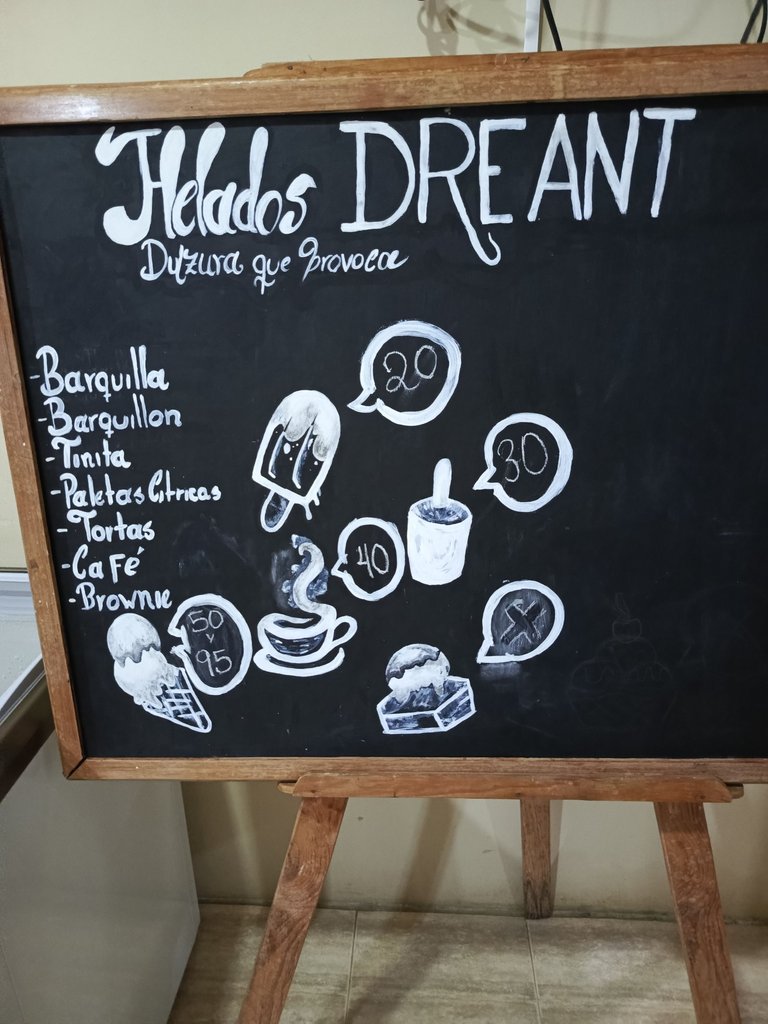 Helados DREANT
Dulzura que provoca
-Barquilla
-Barquillon
-Tinita
-Paletas Citricas
-Tortas
-Café
-Brownie
20
30
40
50
y
95
X